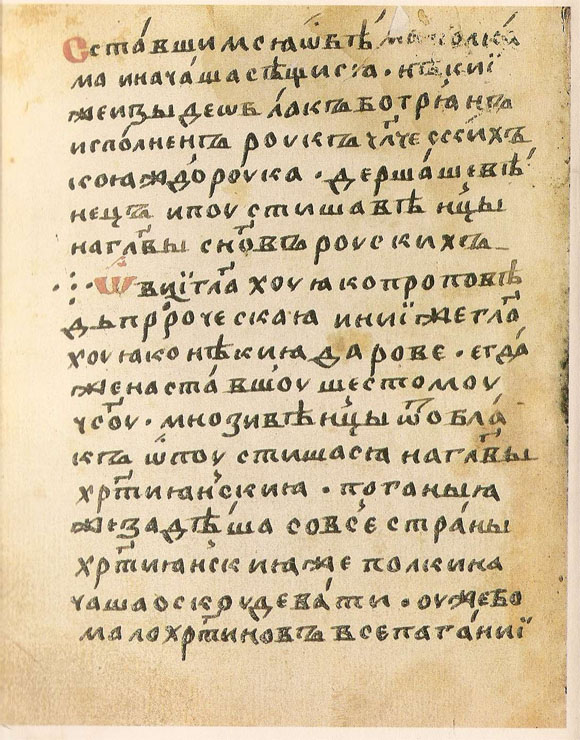 Сста́вшимсꙗѡбѣ́ма полко́
ма иначашасѣщиса · нѣкиї
жеизыдеѡблакъботрꙗнъ
испо́лненъ роукъ чл҃чесскихъ
коꙗждо роука · держа́шевѣ
нецъ ипоустишавѣнцы
наглвы сновъ роускихъ
Ѿвиїгл҃ахоуꙗкопроповѣ
дь прⷪ҇роческаꙗ иниїжегл҃а
хоуꙗконѣкиꙗ дарове · егда́
женаста́вшоу шестомоу
часоу · мнозивѣнцы ѿобла
къ ѿпоустишасꙗ наглвы
хрⷭ҇тиꙗнскиꙗ · поганыꙗ
жезадѣша совсе страны
хрⷭ҇тиꙗнскиꙗже полкина
чашаоскрудева́ти · оужебо
малохрⷭ҇тиновъ всепага́ниї